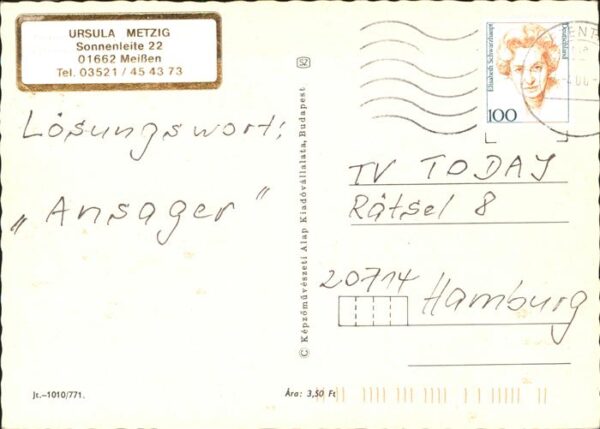 URSULA METZIG
Sonnenleite 22
01662 Meißen
Tel. 03521 / 45 43 73
Lösungswort:
„Ansager"
SZ
© Képzőművészeti Alap Kiadóvállalata, Budapest
Elisabeth Schwarzhaupt
Deutschland
100
TV TODAY
Rätsel 8
20714
Hamburg
Jt.–1010/771.
Ára: 3,50 Ft